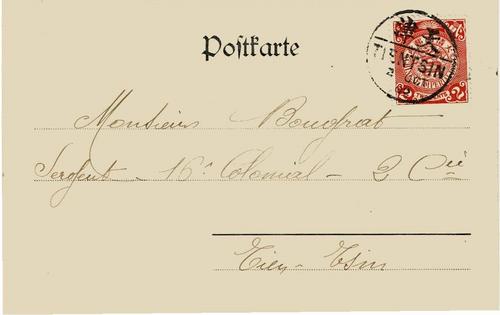 Postkarte
TIENTSIN
2 2
Monsieur Bougrat
Sergent - 16e Colonial - 2 Cie
Tien-Tsin